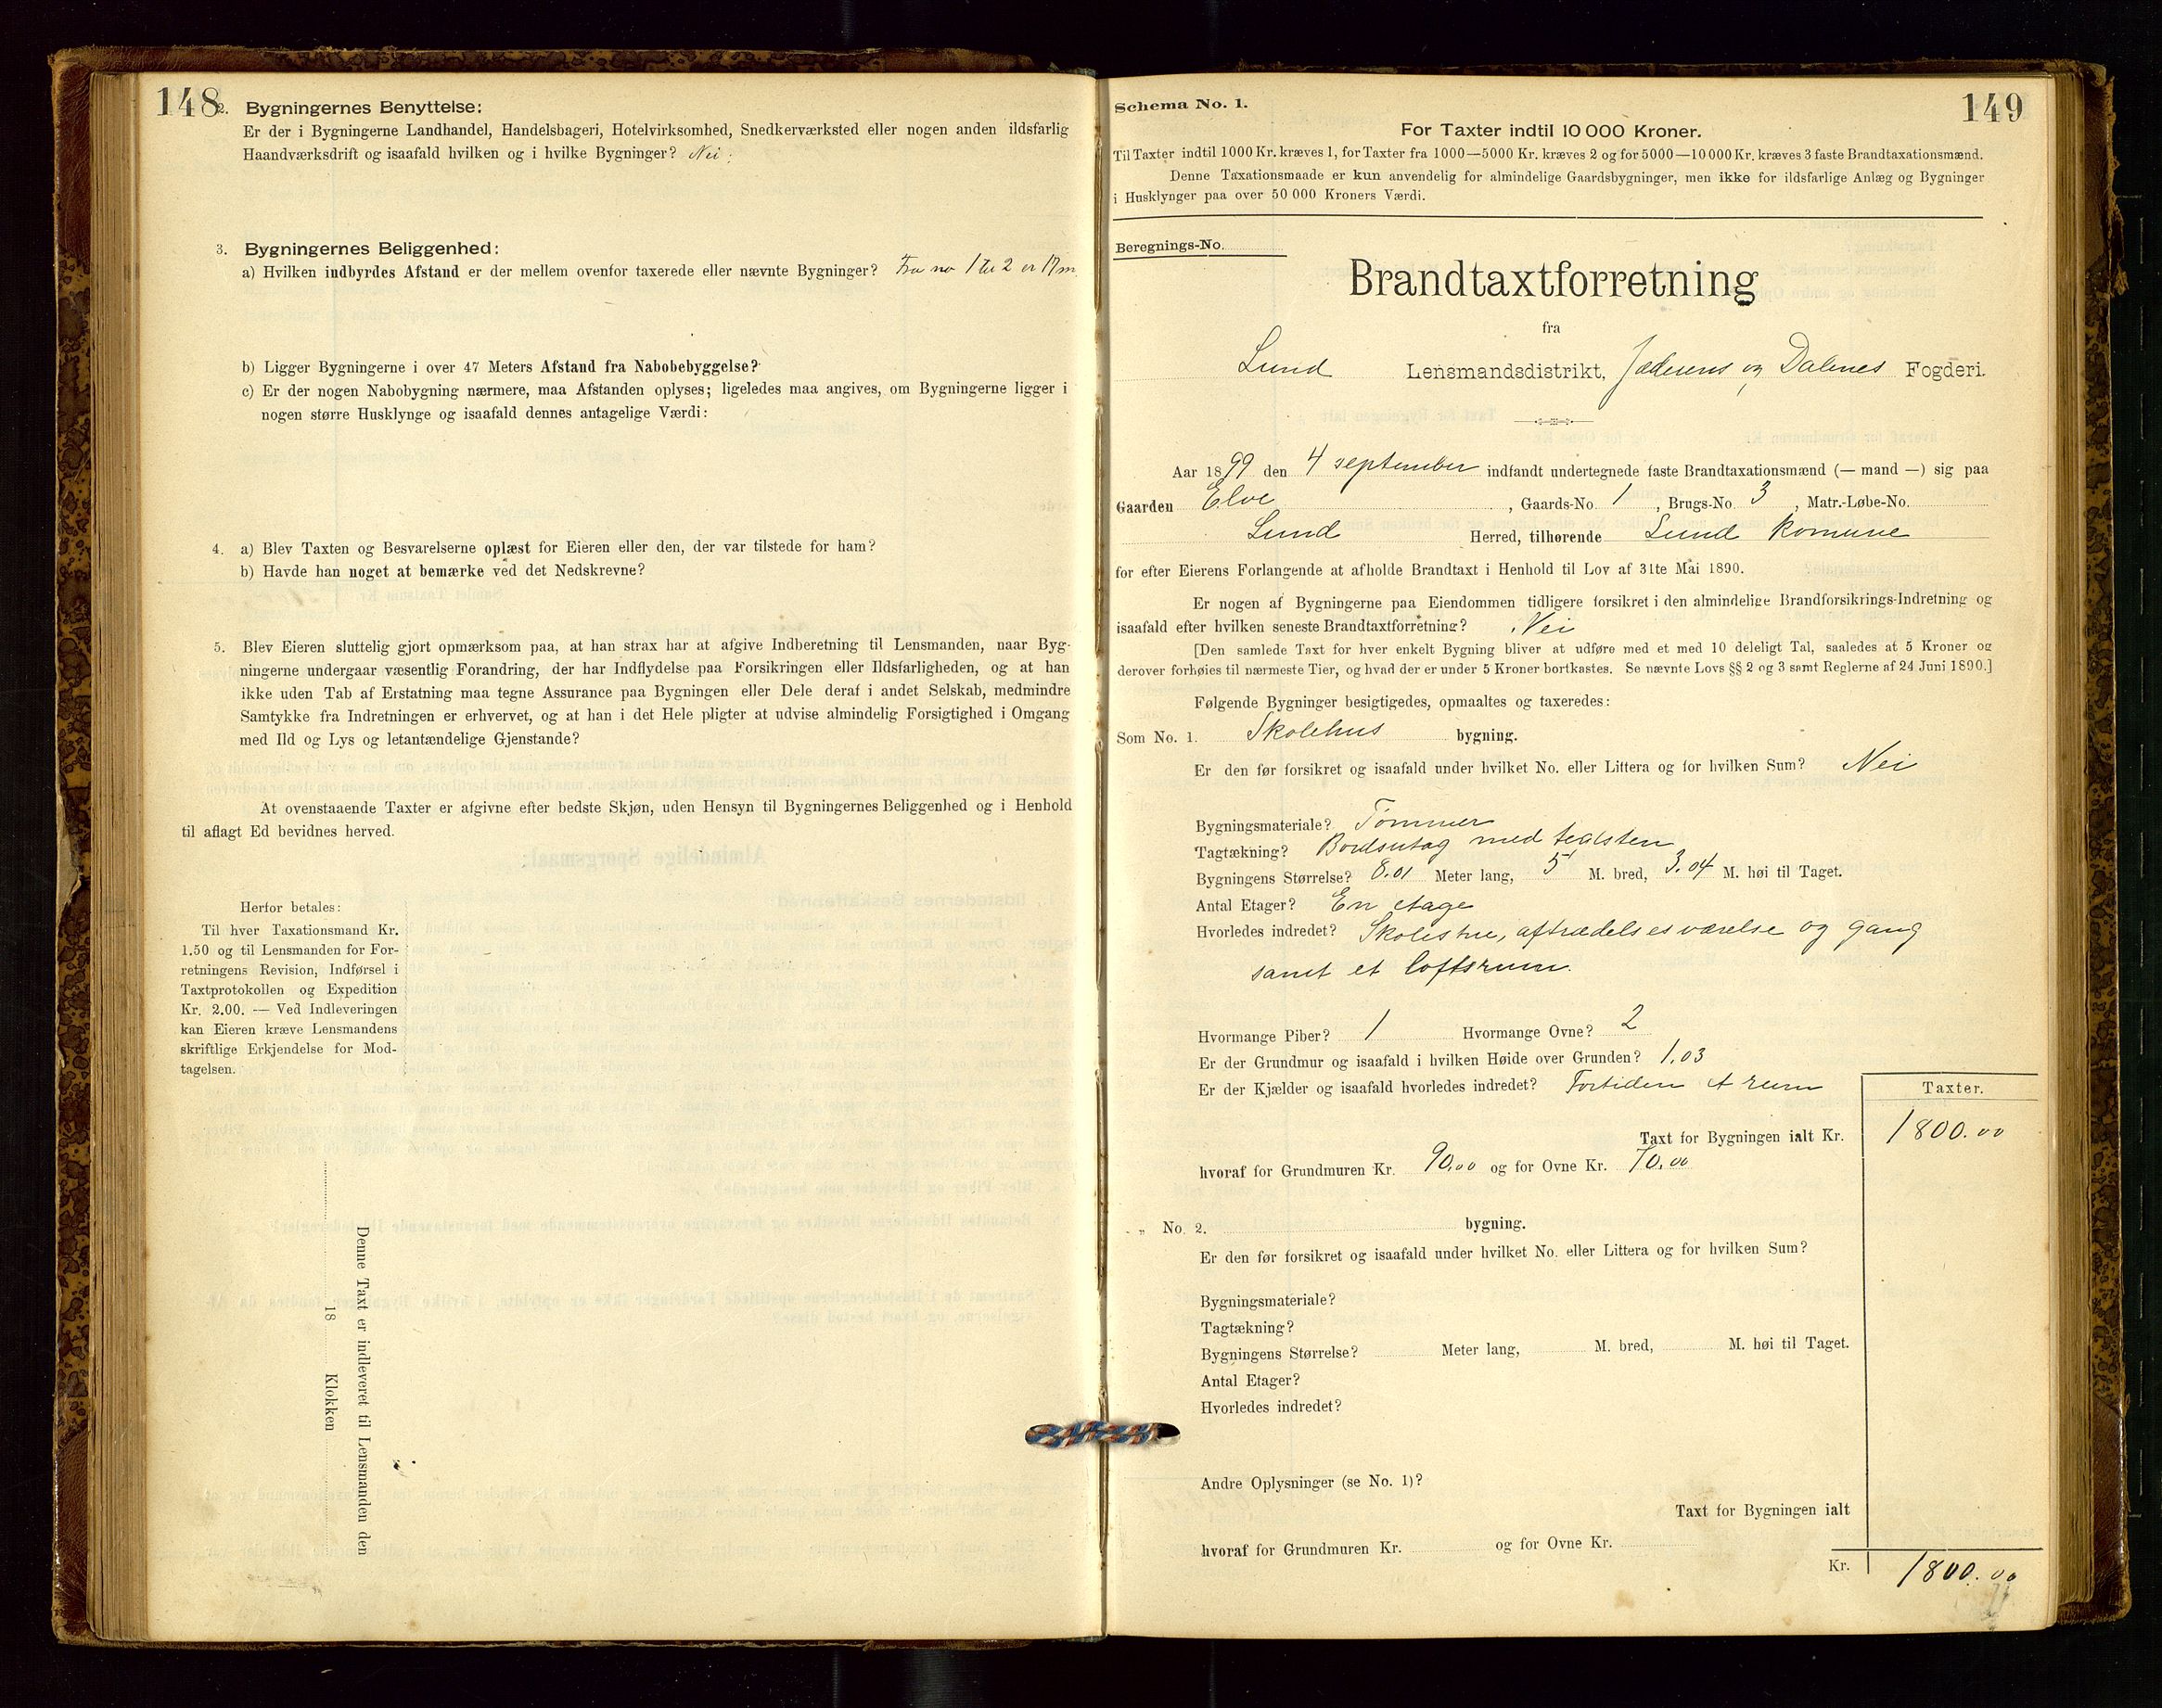 148
2. Bygningernes Benyttelse:
Er der i Bygningerne Landhandel, Handelsbageri, Hotelvirksomhed, Snedkerværksted eller nogen anden ildsfarlig
Haandværksdrift og isaafald hvilken og i hvilke Bygninger? Nei.
3. Bygningernes Beliggenhed:
a) Hvilken indbyrdes Afstand er der mellem ovenfor taxerede eller nævnte Bygninger? Fra no 1 til 2 er 17 m.
b) Ligger Bygningerne i over 47 Meters Afstand fra Nabobebyggelse?
c) Er der nogen Nabobygning nærmere, maa Afstanden oplyses; ligeledes maa angives, om Bygningerne ligger i
nogen større Husklynge og isaafald dennes antagelige Værdi:
4. a) Blev Taxten og Besvarelserne oplæst for Eieren eller den, der var tilstede for ham?
b) Havde han noget at bemærke ved det Nedskrevne?
5. Blev Eieren sluttelig gjort opmærksom paa, at han strax har at afgive Indberetning til Lensmanden, naar Byg-
ningerne undergaar væsentlig Forandring, der har Indflydelse paa Forsikringen eller Ildsfarligheden, og at han
ikke uden Tab af Erstatning maa tegne Assurance paa Bygningen eller Dele deraf i andet Selskab, medmindre
Samtykke fra Indretningen er erhvervet, og at han i det Hele pligter at udvise almindelig Forsigtighed i Omgang
med Ild og Lys og letantændelige Gjenstande?
At ovenstaaende Taxter er afgivne efter bedste Skjøn, uden Hensyn til Bygningernes Beliggenhed og i Henhold
til aflagt Ed bevidnes herved.
Herfor betales:
Til hver Taxationsmand Kr.
1.50 og til Lensmanden for For-
retningens Revision, Indførsel i
Taxtprotokollen og Expedition
Kr. 2.00. — Ved Indleveringen
kan Eieren kræve Lensmandens
skriftlige Erkjendelse for Mod-
tagelsen.
Denne Taxt er indleveret til Lensmanden den
18 Klokken
149
Schema No. 1.
For Taxter indtil 10 000 Kroner.
Til Taxter indtil 1000 Kr. kræves 1, for Taxter fra 1000—5000 Kr. kræves 2 og for 5000—10 000 Kr. kræves 3 faste Brandtaxationsmænd.
Denne Taxationsmaade er kun anvendelig for almindelige Gaardsbygninger, men ikke for ildsfarlige Anlæg og Bygninger
i Husklynger paa over 50 000 Kroners Værdi.
Beregnings-No.
Brandtaxtforretning
fra
Lund Lensmandsdistrikt, Jæderens og Dalenes Fogderi.
Aar 1899 den 4 september indfandt undertegnede faste Brandtaxationsmænd (— mand —) sig paa
Gaarden Elve, Gaards-No. 1, Brugs-No. 3, Matr.-Løbe-No.
Lund Herred, tilhørende Lund komune
for efter Eierens Forlangende at afholde Brandtaxt i Henhold til Lov af 31te Mai 1890.
Er nogen af Bygningerne paa Eiendommen tidligere forsikret i den almindelige Brandforsikrings-Indretning og
isaafald efter hvilken seneste Brandtaxtforretning? Nei
[Den samlede Taxt for hver enkelt Bygning bliver at udføre med et med 10 deleligt Tal, saaledes at 5 Kroner og
derover forhøies til nærmeste Tier, og hvad der er under 5 Kroner bortkastes. Se nævnte Lovs §§ 2 og 3 samt Reglerne af 24 Juni 1890.]
Følgende Bygninger besigtigedes, opmaaltes og taxeredes:
Som No. 1. Skolehus bygning.
Er den før forsikret og isaafald under hvilket No. eller Littera og for hvilken Sum? Nei
Bygningsmateriale? Tømmer
Tagtækning? Bordsutag med teglsten
Bygningens Størrelse? 8.01 Meter lang, 5 M. bred, 3.04 M. høi til Taget.
Antal Etager? En etage
Hvorledes indredet? Skolestue, aftrædelsesværelse og gang
samt et loftsrum.
Hvormange Piber? 1 Hvormange Ovne? 2
Er der Grundmur og isaafald i hvilken Høide over Grunden? 1.03
Er der Kjælder og isaafald hvorledes indredet? Fortiden et rum
Taxter.
Taxt for Bygningen ialt Kr. 1800.00
hvoraf for Grundmuren Kr. 90.00 og for Ovne Kr. 70.00
„ No. 2. bygning.
Er den før forsikret og isaafald under hvilket No. eller Littera og for hvilken Sum?
Bygningsmateriale?
Tagtækning?
Bygningens Størrelse? Meter lang, M. bred, M. høi til Taget.
Antal Etager?
Hvorledes indredet?
Andre Oplysninger (se No. 1)?
Taxt for Bygningen ialt
hvoraf for Grundmuren Kr. og for Ovne Kr.
Kr. 1800.00